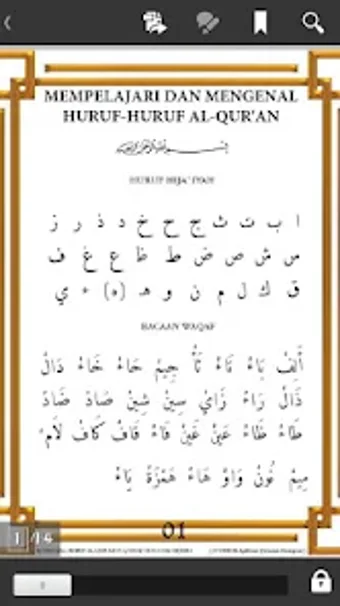 MEMPELAJARI DAN MENGENAL
HURUF-HURUF AL-QUR'AN
HURUF HIJA'IYAH
ا ب ت ث ج ح خ د ذ ر ز
س ش ص ض ط ظ ع غ ف
ق ك ل م ن و هـ (ة) ء ي
BACAAN WAQAF
أَلِفْ بَاءْ تَاءْ ثَاءْ جِيمْ حَاءْ خَاءْ دَالْ
ذَالْ رَاءْ زَايْ سِينْ شِينْ صَادْ ضَادْ
طَاءْ ظَاءْ عَيْنْ غَيْنْ فَاءْ قَافْ كَافْ لَامْ
مِيمْ نُونْ وَاوْ هَاءْ هَمْزَةْ يَاءْ
01
1 /14
1